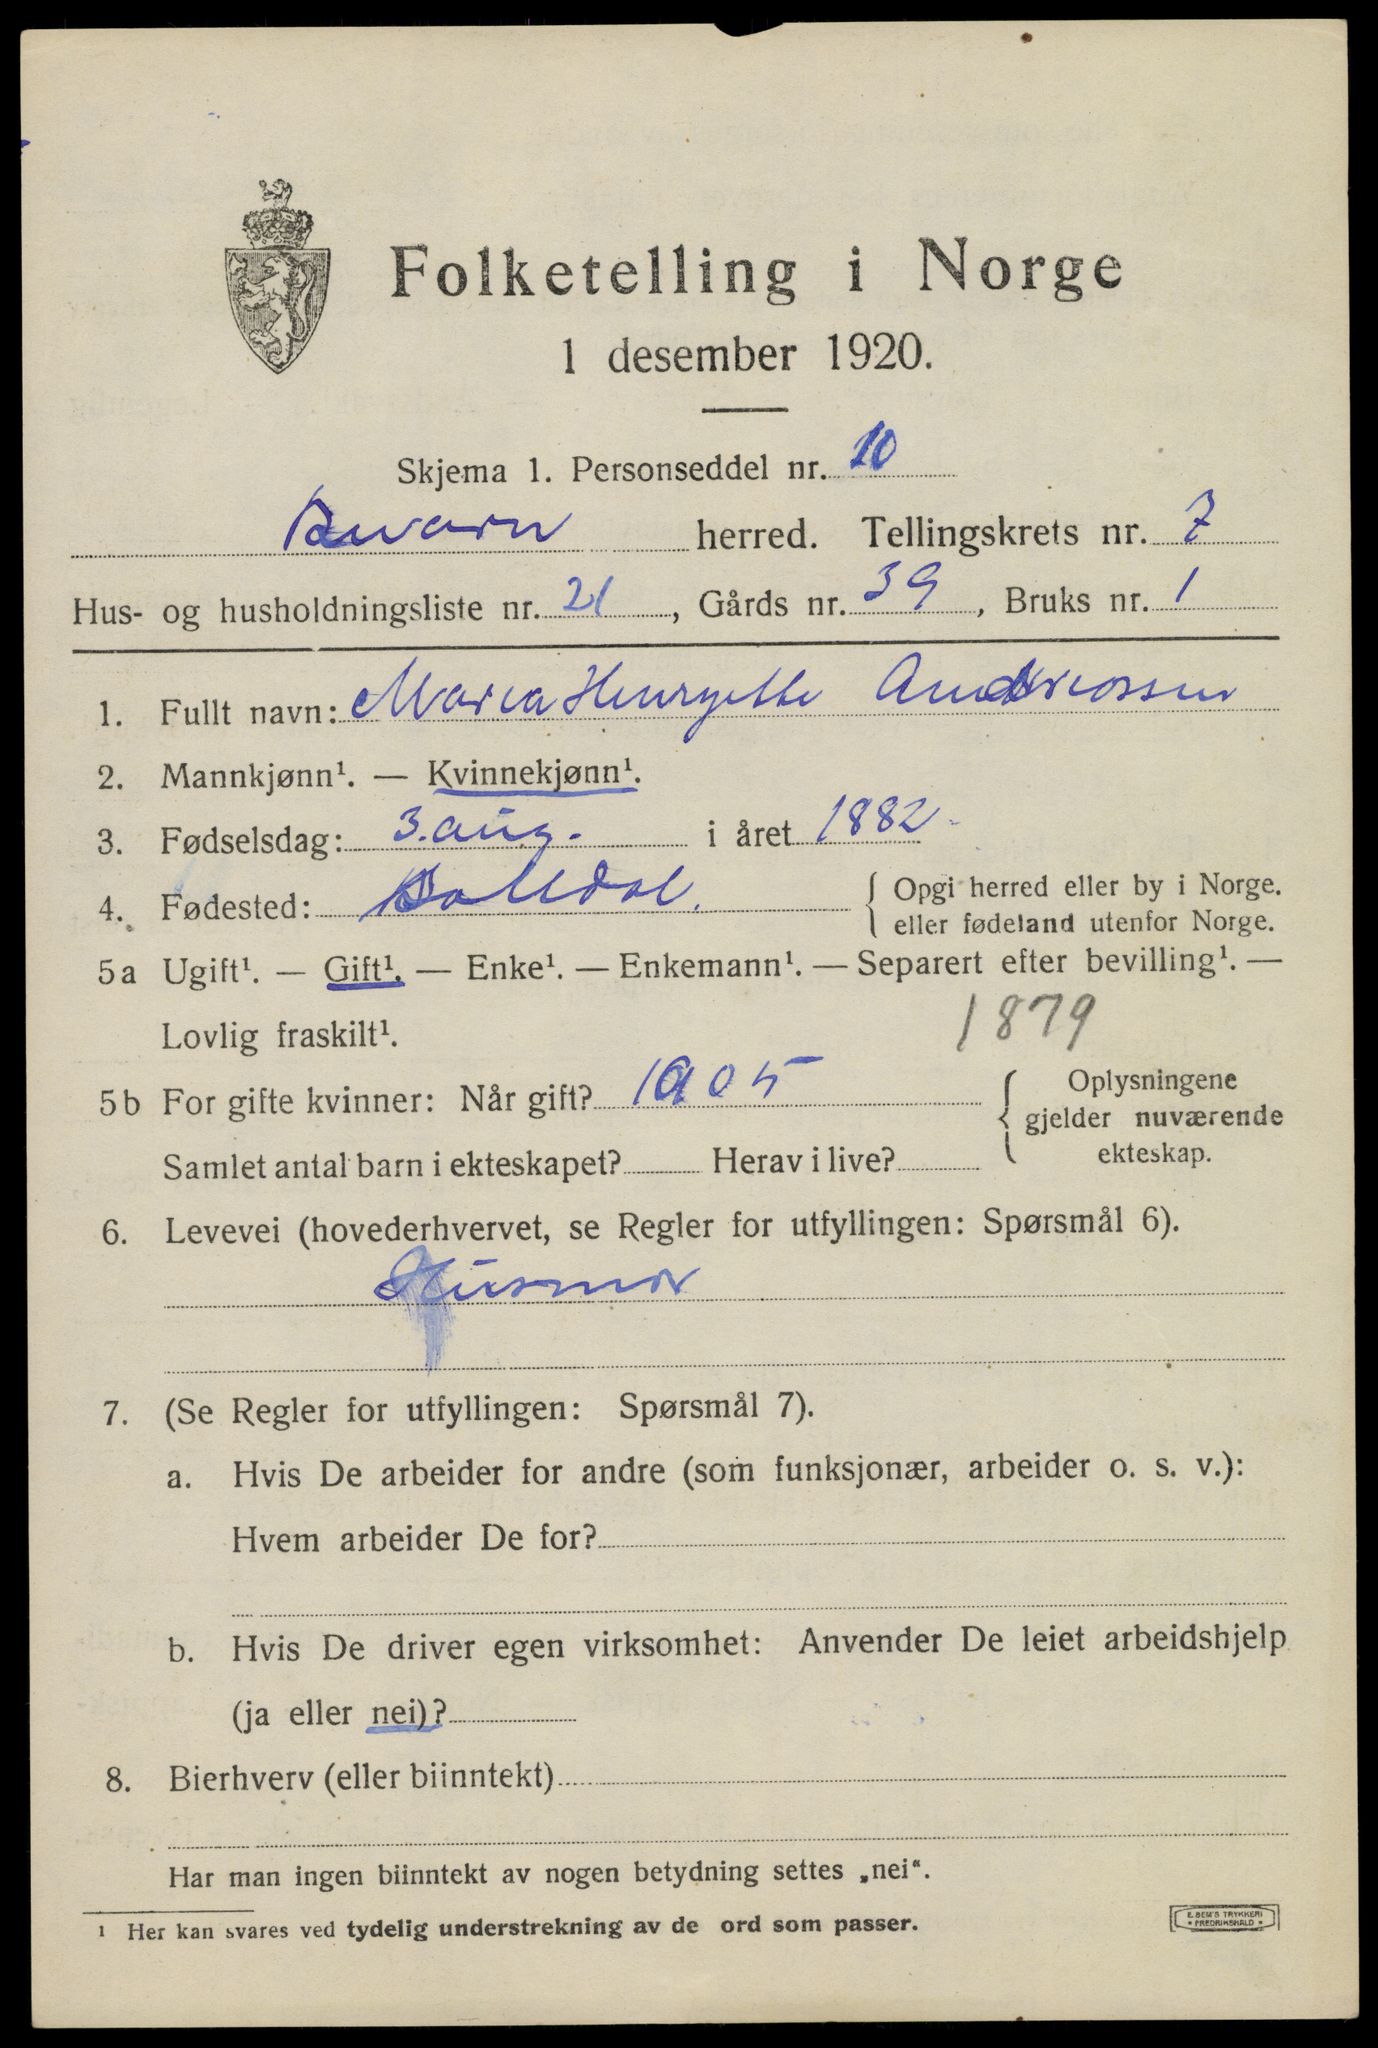 Folketelling i Norge
1 desember 1920.
Skjema 1. Personseddel nr. 10
herred. Tellingskrets nr. 7
Hus- og husholdningsliste nr. 21, Gårds nr. 39, Bruks nr. 1
1. Fullt navn: Maria Andreassen
2. Mannkjønn¹. — Kvinnekjønn¹.
3. Fødselsdag: 3. aug. i året 1882
4. Fødested: { Opgi herred eller by i Norge.
eller fødeland utenfor Norge.
5a Ugift¹. — Gift¹. — Enke¹. — Enkemann¹. — Separert efter bevilling¹. —
Lovlig fraskilt¹. 1879
5b For gifte kvinner: Når gift? 1905 { Oplysningene
gjelder nuværende
Samlet antal barn i ekteskapet? Herav i live? ekteskap.
6. Levevei (hovederhvervet, se Regler for utfyllingen: Spørsmål 6).
Husmor
7. (Se Regler for utfyllingen: Spørsmål 7).
a. Hvis De arbeider for andre (som funksjonær, arbeider o. s. v.):
Hvem arbeider De for?
b. Hvis De driver egen virksomhet: Anvender De leiet arbeidshjelp
(ja eller nei)?
8. Bierhverv (eller biinntekt)
Har man ingen biinntekt av nogen betydning settes „nei“.
1 Her kan svares ved tydelig understrekning av de ord som passer.
E. SEM'S TRYKKERI
• FREDRIKSHALD •